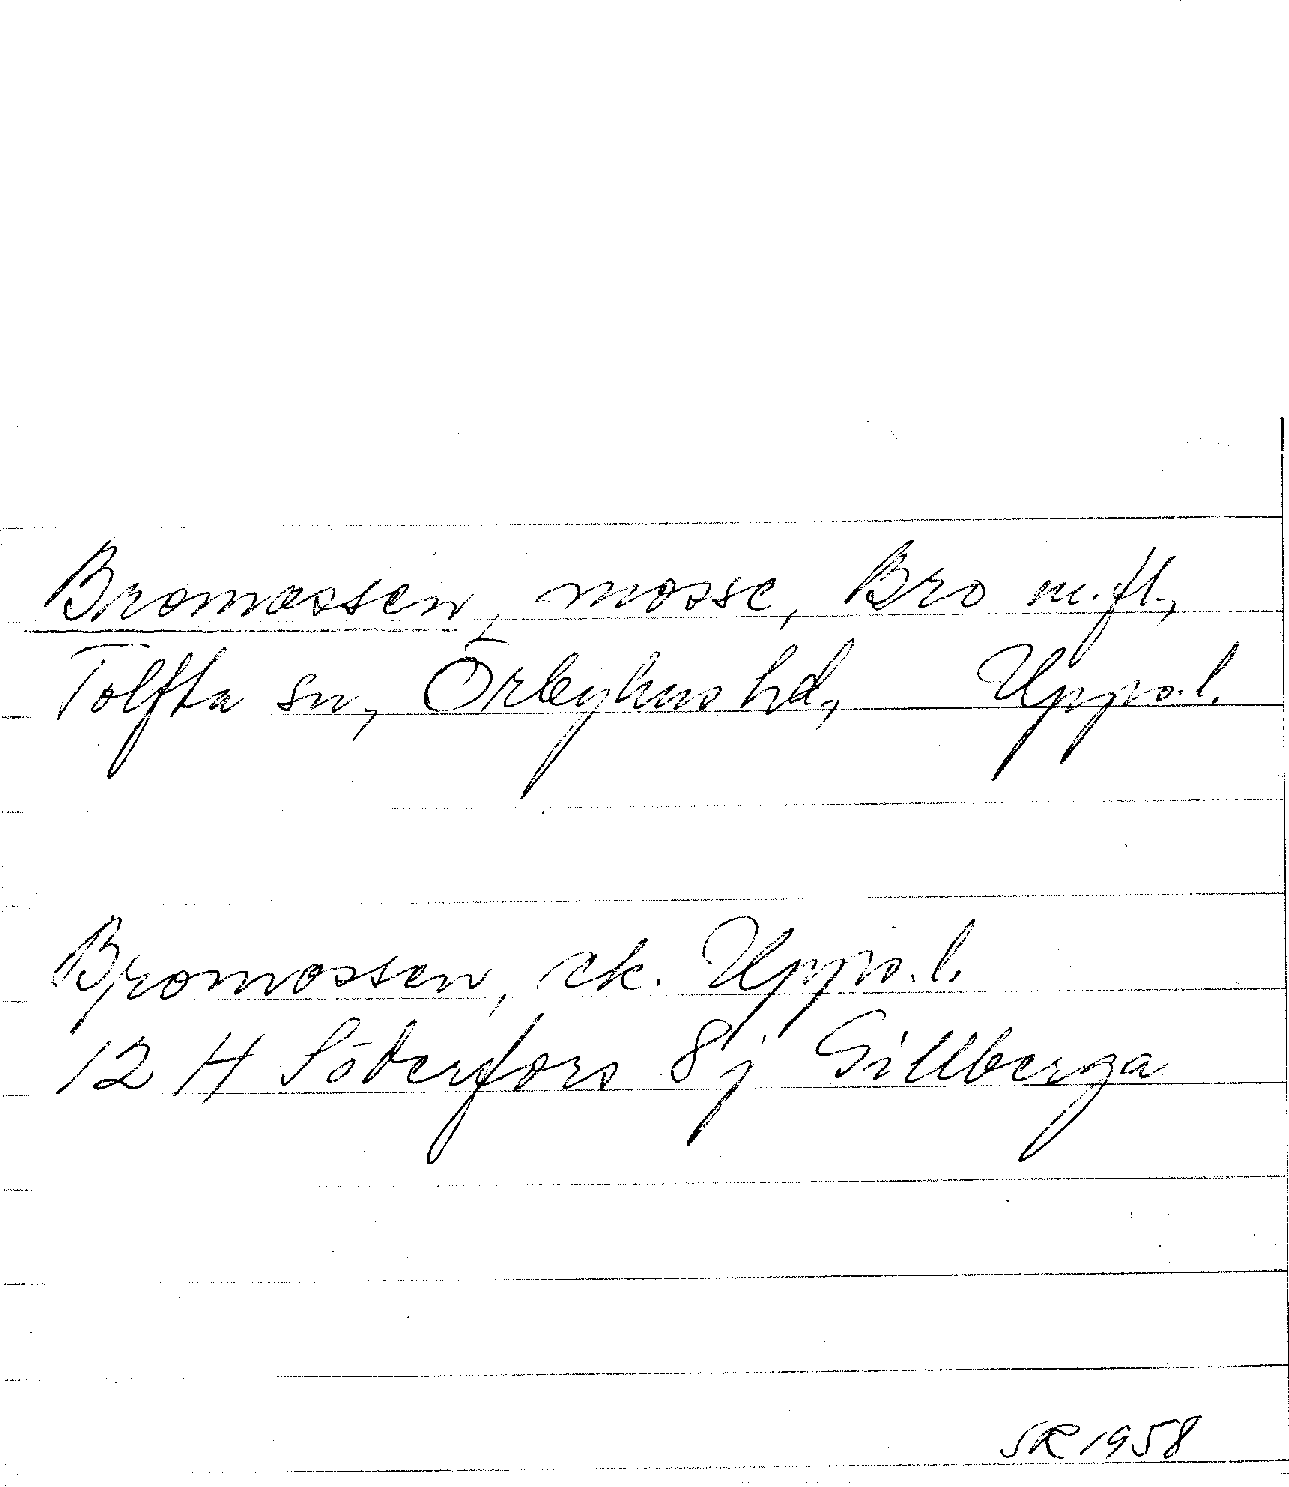 Bromossen, mosse, Bro m.fl.,
Tolfta sn, Örbyhus hd, Upps.l.
Bromossen, ek. Upps.l.
12 H Söderfors 8j Gillberga
SR 1958